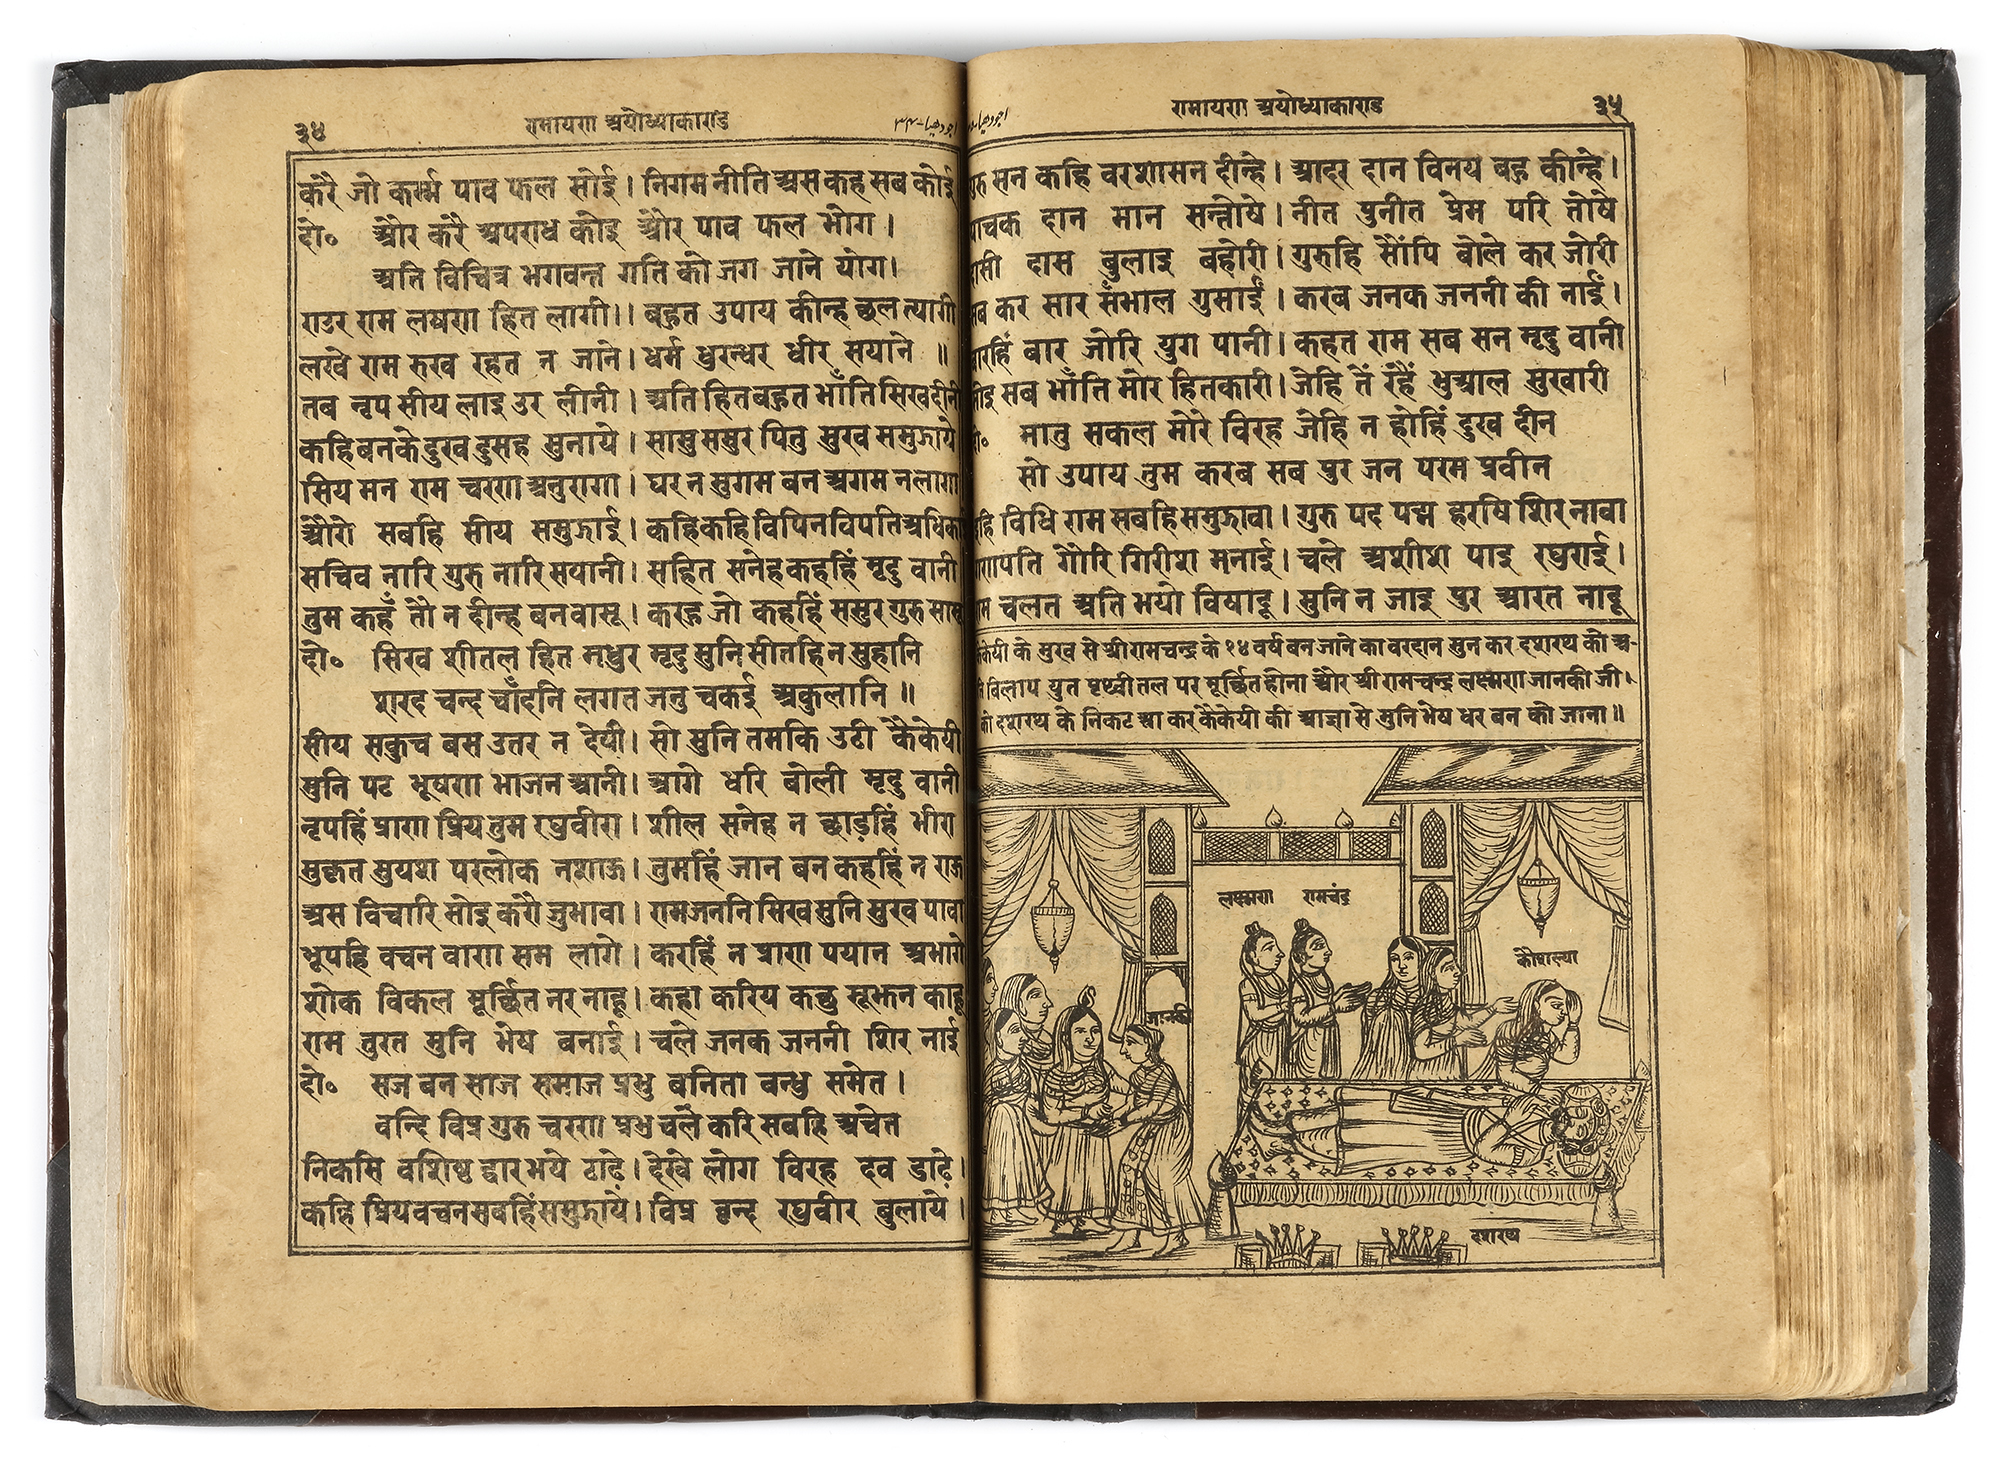 ३४
रामायणा अयोध्याकाराड
اجودھیا-۳۴
करै जो कर्म्म पाव फल सोई। निगम नीति अस कह सब कोई
दो॰ और करै अपराध कोइ और पाव फल भोग।
अति विचित्र भगवन्त गति को जग जाने योग।
राउर राम लषणा हित लागी।। बहुत उपाय कीन्ह छल त्यागी
लखे राम रुख रहत न जाने। धर्म धुरन्धर धीर सयाने ॥
तब नृप सीय लाइ उर लीनी। अति हित बहुत भाँति सिख दीनी
कहि बनके दुख दुसह सुनाये। सासु ससुर पितु सुख समुझाये
सिय मन राम चरणा अनुरागा। घर न सुगम बन अगम न लागा
औरौ सबहि सीय समुझाई। कहि कहि विपिन विपति अधिका
सचिव नारि गुरु नारि सयानी। सहित सनेह कहहिं मृदु वानी
तुम कहँ तौ न दीन्ह बनवासू। करहु जो कहहिं ससुर गुरु सासू
दो॰ सिख शीतल हित मधुर मृदु सुनि सीतहि न सुहानि
शरद चन्द चाँदनि लगत जनु चकई अकुलानि ॥
सीय सकुच बस उतर न देयी। सो सुनि तमकि उठी कैकेयी
सुनि पट भूषणा भाजन आनी। आगे धरि बोली मृदु वानी
नृपहिं प्राणा प्रिय तुम रघुवीरा। शील सनेह न छाड़हिं भीरा
सुकृत सुयश परलोक नशाऊ। तुमहिं जान बन कहहिं न राऊ
अस विचारि सोइ करौ जुभावा। राम जननि सिख सुनि सुख पावा
भूपहि वचन वाणा सम लागे। करहिं न प्राणा पयान अभागे
शोक विकल मूर्च्छित नर नाहू। कहा करिय कछु सूझ न काहू
राम तुरत मुनि भेष बनाई। चले जनक जननी शिर नाई
दो॰ सज बन साज समाज प्रभु बनिता बन्धु समेत।
वन्दि विप्र गुरु चरणा प्रभु चले करि सबहि अचेत
निकसि वशिष्ठ द्वार भये ठाढ़े। देखे लोग विरह दव डाढ़े।
कहि प्रिय वचन सबहिं समुझाये। विप्र वृन्द रघुवीर बुलाये।
اجودھیا
रामायणा अयोध्याकाराड
३५
गुरु सन कहि वरशासन दीन्हे। आदर दान विनय बहु कीन्हे।
याचक दान मान सन्तोषे। नीत पुनीत प्रेम परि तोषे
दासी दास बुलाइ बहोरी। गुरुहि सौंपि बोले कर जोरी
सब कर सार सँभाल गुसाईं। करब जनक जननी की नाईं।
बारहिं बार जोरि युग पानी। कहत राम सब सन मृदु वानी
सोइ सब भाँति मोर हितकारी। जेहि तें रहैं भुआल सुखारी
दो॰ मातु सकल मोरे विरह जेहि न होहिं दुख दीन
सो उपाय तुम करब सब पुर जन परम प्रवीन
इहि विधि राम सबहि समुझावा। गुरु पद पद्म हरषि शिर नावा
गणापति गौरि गिरीश मनाई। चले अशीश पाइ रघुराई।
राम चलत अति भयो विषादू। सुनि न जाइ पुर आरत नादू
कैकेयी के मुख से श्रीरामचन्द्र के १४ वर्ष बन जाने का वरदान सुन कर दशरथ को अ-
ति विलाप युत पृथ्वी तल पर मूर्च्छित होना और श्री रामचन्द्र लक्ष्मणा जानकी जी।
को दशरथ के निकट आ कर कैकेयी की आज्ञा से मुनि भेष धर बन को जाना॥
लक्ष्मणा रामचंद्र
कौशल्या
जानकी
दशरथ